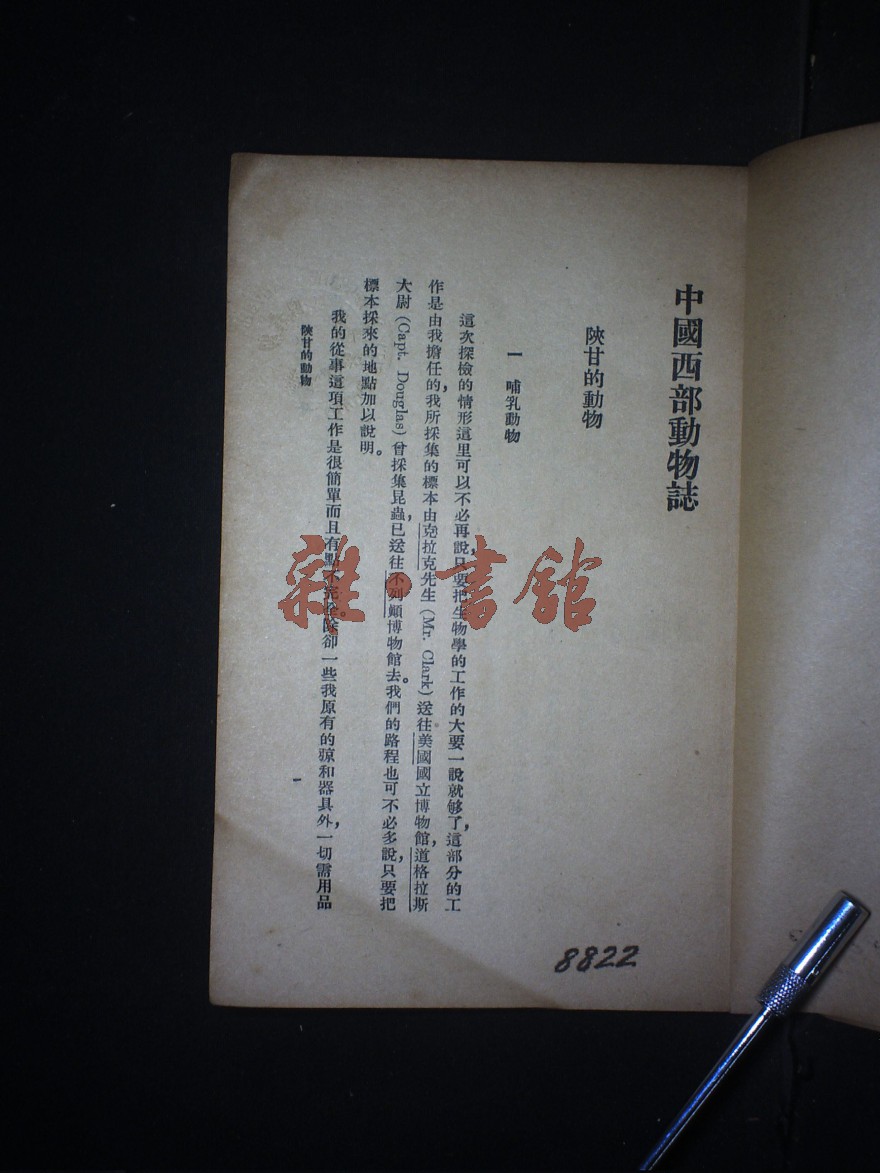 中國西部動物誌
陝甘的動物
一　哺乳動物
這次探檢的情形這里可以不必再說，只要把生物學的工作的大要一說就够了，這部分的工
作是由我擔任的，我所採集的標本由克拉克先生(Mr. Clark)送往美國國立博物館，道格拉斯
大尉(Capt. Douglas)曾採集昆蟲，已送往不列顛博物館去。我們的路程也可不必多說，只要把
標本採來的地點加以說明。
我的從事這項工作是很簡單而且有點不完全除卻一些我原有的和器具外，一切需用品
陝甘的動物
一
8822
雜·書館